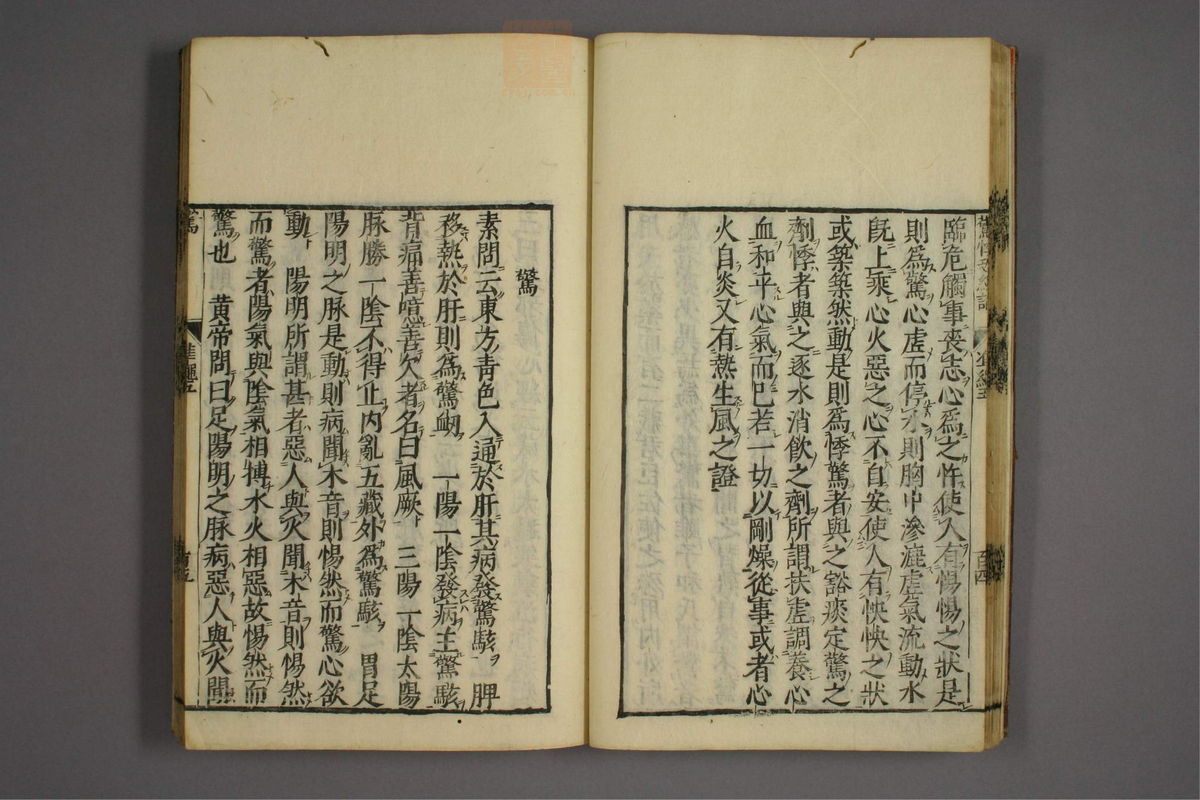 臨危觸事喪志心爲之忤使人有惕惕之狀是
則爲驚心虛而停水則胸中滲漉虛氣流動水
既上乘心火惡之心不自安使人有怏怏之狀
或築築然動是則爲悸驚者與之豁痰定驚之
劑悸者與之逐水消飲之劑所謂扶虛調養心
血和平心氣而已若一切以剛燥從事或者心
火自炎又有熱生風之證
驚
素問云東方青色入通於肝其病發驚駭 脾
移熱於肝則爲驚衄 一陽一陰發病主驚駭
背痛善噫善欠者名曰風厥 三陽一陰太陽
脉勝一陰不得止內亂五藏外爲驚駭 胃足
陽明之脉是動則病聞木音則惕然而驚心欲
動 陽明所謂甚者惡人與火聞木音則惕然
而驚者陽氣與陰氣相搏水火相惡故惕然而
驚也 黃帝問曰足陽明之脉病惡人與火聞
驚
準繩五
百五
百四